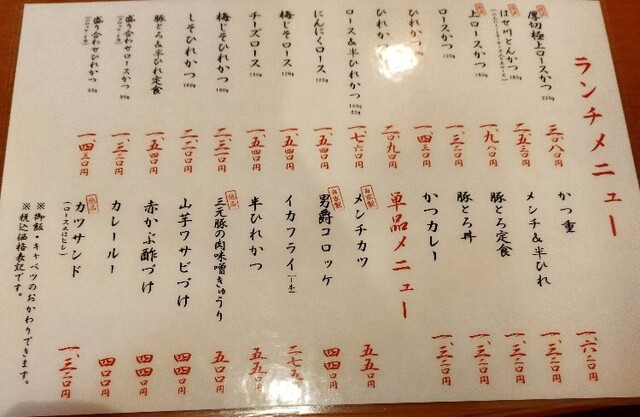 ランチメニュー
厚切極上ロースかつ 220g 三、〇八〇円
はせ川とんかつ 180g 二、五三〇円
上ロースかつ 180g 一、九八〇円
ロースかつ 120g 一、五三〇円
ひれかつ 一、四三〇円
ひれかつ 二、〇九〇円
ロース&半ひれかつ 120g 60g 一、七六〇円
にんにくロース 120g 一、五四〇円
梅じそロース 120g 一、五四〇円
チーズロース 120g 一、五四〇円
梅しそひれかつ 180g 二、三一〇円
しそひれかつ 180g 二、二〇〇円
豚とろ&半ひれ定食 一、五四〇円
盛り合わせロースかつ 90g 一、三二〇円
盛り合わせひれかつ 60g 一、四三〇円
かつ重 一、六二〇円
メンチ&半ひれ 一、三二〇円
豚とろ定食 一、三二〇円
豚とろ丼 一、三二〇円
かつカレー 一、三二〇円
単品メニュー
自家製
メンチカツ 五五〇円
自家製
男爵コロッケ 四四〇円
イカフライ(一本) 二七五円
半ひれかつ 五五〇円
三元豚の肉味噌きゅうり 五〇〇円
山芋ワサビづけ 四四〇円
赤かぶ酢づけ 四四〇円
カレールー 四〇〇円
カツサンド
(ロース又はヒレ) 一、三二〇円
※御飯・キャベツのおかわりできます。
※税込価格表記です。